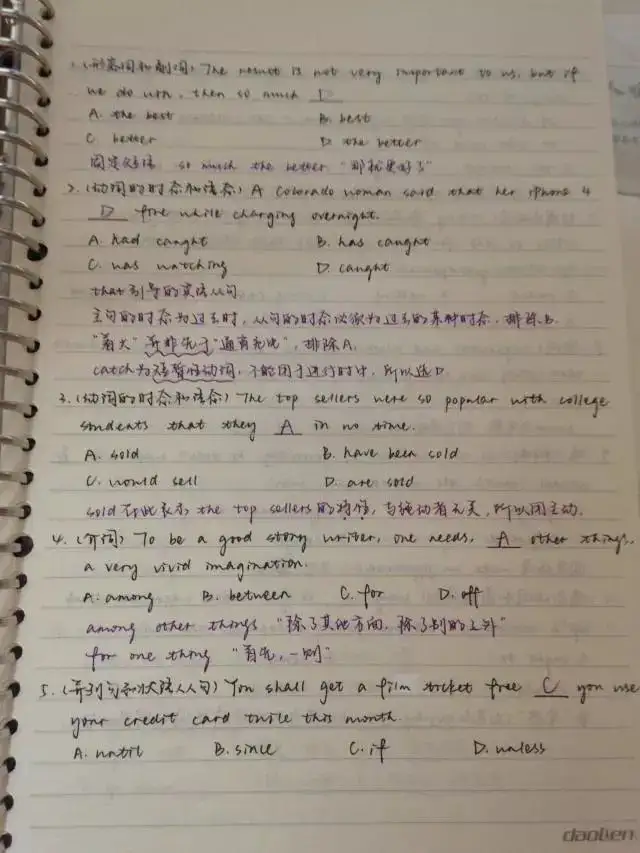 1.(形容词和副词) The result is not very important to us, but if
we do win, then so much D
A. the best B. best
C. better D. the better
固定短语 so much the better "那就更好了"
2.(动词的时态和语态) A Colorado woman said that her iphone 4
D fire while charging overnight.
A. had caught B. has caught
C. was catching D. caught
that引导的宾语从句
主句的时态为过去时,从句的时态必须为过去的某种时态,排除B.
"着火"并非先于"通宵充电",排除A.
catch为短暂性动词,不能用于进行时中,所以选D.
3.(动词的时态和语态) The top sellers were so popular with college
students that they A in no time.
A. sold B. have been sold
C. would sell D. are sold
sold在此表示 the top sellers的特性,与施动者无关,所以用主动.
4.(介词) To be a good story writer, one needs, A other things,
a very vivid imagination.
A. among B. between C. for D. off
among other things "除了其他方面,除了别的之外"
for one thing "首先,一则"
5.(并列句和状语从句) You shall get a film ticket free C you use
your credit card twice this month.
A. until B. since C. if D. unless